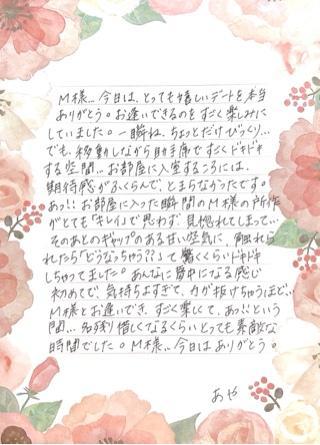 M様...今日は、とっても嬉しいデートを本当
ありがとう。お逢いできるのをすごく楽しみに
していました。一瞬ね、ちょっとだけびっくり...
でも、移動しながら助手席ですごくドキドキ
する空間...お部屋に入室するころには、
期待感がふくらんで、とまらなかったです。
あっ!!お部屋に入った瞬間のM様の所作
がとても「キレイ」で思わず、見惚れてしまって...
そのあとのギャップのある甘い空気に、触れら
れたら「どうなっちゃう??」って驚くくらいドキドキ
しちゃってました。あんなに夢中になる感じ
初めてで、気持ちよすぎて、力が抜けちゃうほど...
M様とお逢いでき、すごく楽しくて、あっ!!という
間...名残り惜しくなるくらいとっても素敵な
時間でした。M様...今日はありがとう。
あや